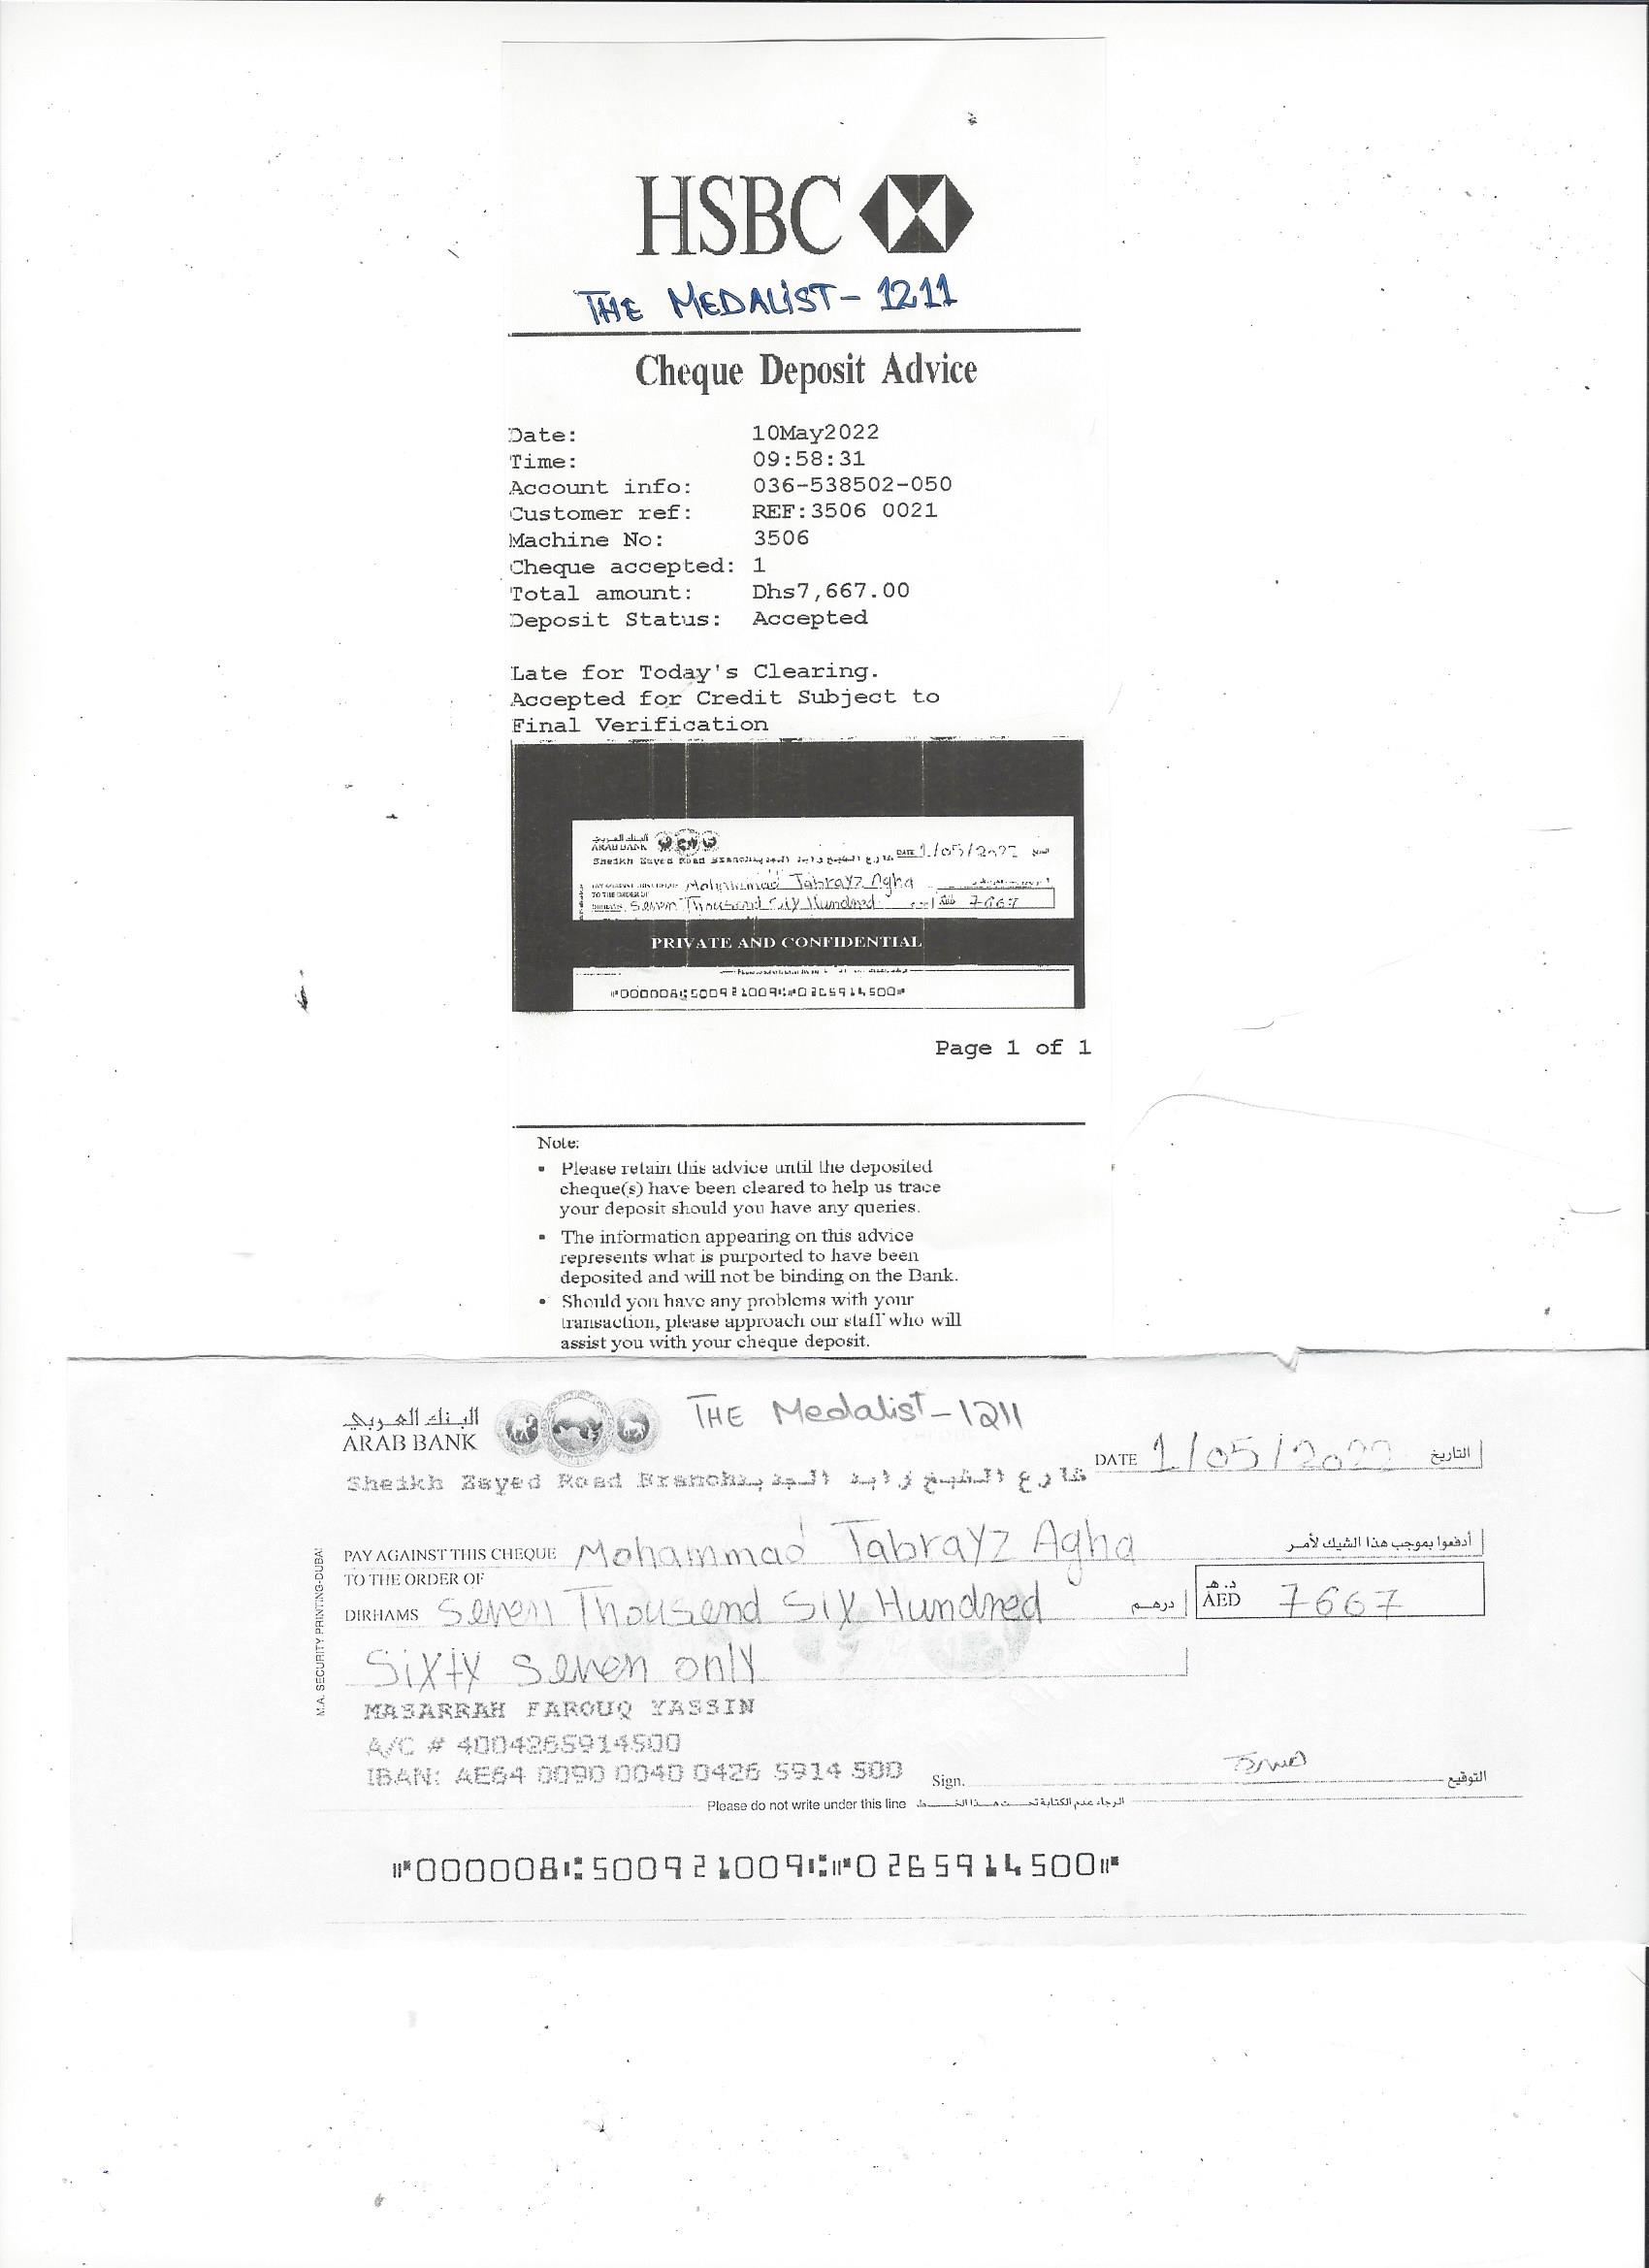 HSBC
THE MEDALIST - 1211
Cheque Deposit Advice
Date: 10May2022
Time: 09:58:31
Account info: 036-538502-050
Customer ref: REF:3506 0021
Machine No: 3506
Cheque accepted: 1
Total amount: Dhs7,667.00
Deposit Status: Accepted
Late for Today's Clearing.
Accepted for Credit Subject to
Final Verification
البنك العربي
ARAB BANK
Sheikh Zayed Road Branch شارع الشيخ زايد DATE 1/05/2022
Mohammad Tabrayz Agha
TO THE ORDER OF
DIRHAMS Seven Thousand Six Hundred AED 7667
PRIVATE AND CONFIDENTIAL
⑈000008⑆500921009⑆⑈0265914500⑈
Page 1 of 1
Note:
• Please retain this advice until the deposited
cheque(s) have been cleared to help us trace
your deposit should you have any queries.
• The information appearing on this advice
represents what is purported to have been
deposited and will not be binding on the Bank.
• Should you have any problems with your
transaction, please approach our staff who will
assist you with your cheque deposit.
البنك العربي
ARAB BANK
THE Medalist - 1211
DATE 1/05/2022 التاريخ
Sheikh Zayed Road Branch شارع الشيخ زايد
PAY AGAINST THIS CHEQUE Mohammad Tabrayz Agha أدفعوا بموجب هذا الشيك لأمر
TO THE ORDER OF
DIRHAMS Seven Thousand Six Hundred درهم د.هـ AED 7667
Sixty Seven only
MASARRAH FAROUQ YASSIN
A/C # 4004265914500
IBAN: AE64 0090 0040 0426 5914 500
Sign. التوقيع
Please do not write under this line الرجاء عدم الكتابة تحت هذا الخط
⑈000008⑆500921009⑆⑈0265914500⑈
M.A. SECURITY PRINTING-DUBAI